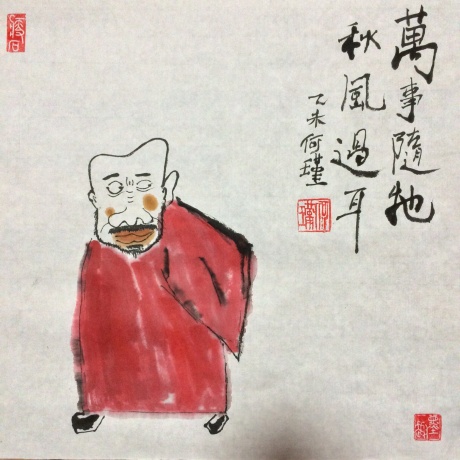 萬事隨牠
秋風過耳
乙未何瑾